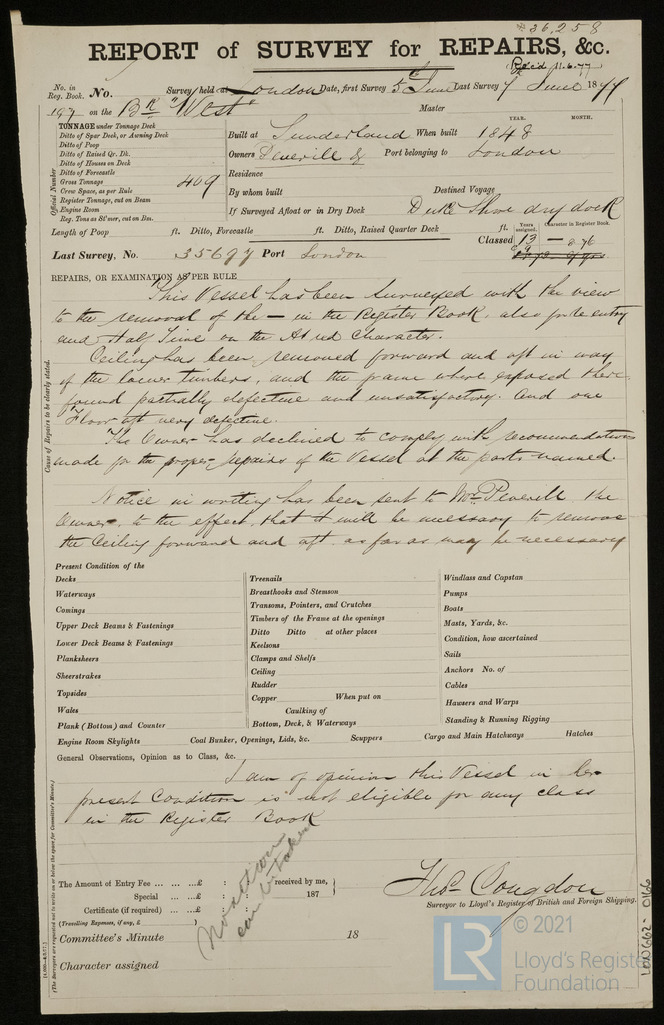 * 36,258
REPORT of SURVEY for REPAIRS, &c.
Rec'd 11.6.77
No. in Reg. Book. No. Survey held at London Date, first Survey 5th June Last Survey 7 June 1877
197 on the Bk "West" Master
TONNAGE under Tonnage Deck
Ditto of Spar Deck, or Awning Deck
Ditto of Poop
Ditto of Raised Qr. Dk.
Ditto of Houses on Deck
Ditto of Forecastle
Gross Tonnage 409
Crew Space, as per Rule
Register Tonnage, cut on Beam
Engine Room
Reg. Tons as St'mer, cut on Bm.
Official Number
YEAR. MONTH.
Built at Sunderland When built 1848
Owners Peverill & Port belonging to London
Residence
By whom built Destined Voyage
If Surveyed Afloat or in Dry Dock Duke Shore dry dock
Length of Poop ft. Ditto, Forecastle ft. Ditto, Raised Quarter Deck ft.
Years assigned. Character in Register Book.
Classed 13 — 2.76
Last Survey, No. 35697 Port London
REPAIRS, OR EXAMINATION AS PER RULE
This Vessel has been surveyed with the view
to the removal of the — in the Register Book, also for re entry
and Half Time on the A red Character.
Ceiling has been removed forward and aft in way
of the lower timbers, and the frame where exposed there
found partially defective and unsatisfactory. And one
Floor aft very defective.
The Owner has declined to comply with recommendations
made for the proper repairs of the Vessel at the parts named.
Notice in writing has been sent to Mr. Peverill, the
Owner, to the effect, that it will be necessary to remove
the Ceiling forward and aft as far as may be necessary
Cause of Repairs to be clearly stated.
Present Condition of the
Decks
Waterways
Comings
Upper Deck Beams & Fastenings
Lower Deck Beams & Fastenings
Planksheers
Sheerstrakes
Topsides
Wales
Plank (Bottom) and Counter
Treenails
Breasthooks and Stemson
Transoms, Pointers, and Crutches
Timbers of the Frame at the openings
Ditto Ditto at other places
Keelsons
Clamps and Shelfs
Ceiling
Rudder
Copper When put on
Caulking of
Bottom, Deck, & Waterways
Windlass and Capstan
Pumps
Boats
Masts, Yards, &c.
Condition, how ascertained
Sails
Anchors No. of
Cables
Hawsers and Warps
Standing & Running Rigging
Engine Room Skylights Coal Bunker, Openings, Lids, &c. Scuppers Cargo and Main Hatchways Hatches
General Observations, Opinion as to Class, &c.
I am of opinion this Vessel in her
present Condition is not eligible for any class
in the Register Book
The Amount of Entry Fee ... ... ... £ : : received by me,
Special ... ... £ : : 187
Certificate (if required) ... ... £ : :
(Travelling Expenses, if any, £ )
No action can be taken
Thos. Congdon
Surveyor to Lloyd's Register of British and Foreign Shipping.
Committee's Minute 18
Character assigned
(The Surveyors are requested not to write on or below the space for Committee's Minute.)
LON662-0166
LR
© 2021
Lloyd's Register
Foundation